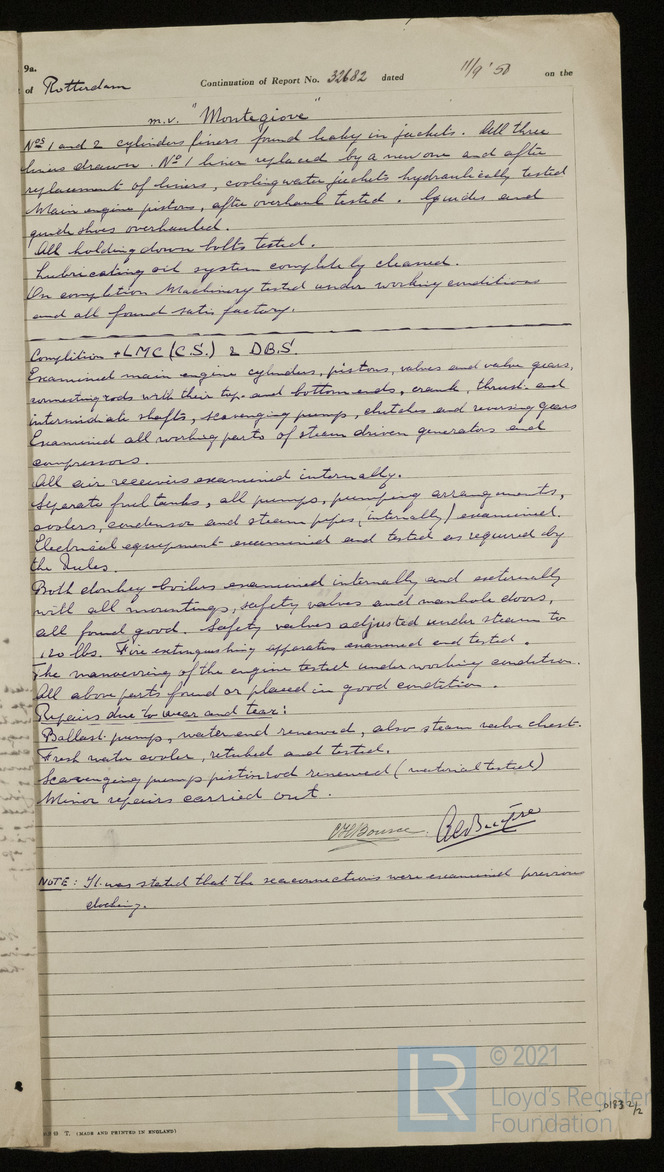 9a.
of Rotterdam Continuation of Report No. 32682 dated 11/9 '50 on the
m.v. "Montegiove"
Nos 1 and 2 cylinders liners found leaky in jackets. All three
liners drawn. No 1 liner replaced by a new one and after
replacement of liners, coolingwater jackets hydraulically tested
Main engine pistons, after overhaul tested. Guides and
guide shoes overhauled.
All holding down bolts tested.
Lubricating oil system completely cleaned.
On completion Machinery tested under working conditions
and all found satisfactory.
Completion + LMC (C.S.) & D.B.S.
Examined main engine cylinders, pistons, valves and valve gears,
connecting rods with their top- and bottom ends, crank, thrust- and
intermediate shafts, scavenging pump, clutches and reversing gears
Examined all working parts of steam driven generators and
compressors.
All air receivers examined internally.
Separate fuel tanks, all pumps, pumping arrangements,
coolers, condensor and steam pipes, (internally) examined.
Electrical equipment examined and tested as required by
the Rules.
Both donkey boilers examined internally and externally
with all mountings, safety valves and manhole doors,
all found good. Safety valves adjusted under steam to
120 lbs. Fire extinguishing apparatus examined and tested.
The manoevring of the engine tested under working condition.
All above parts found or placed in good condition.
Repairs due to wear and tear:
Ballast pump, waterend renewed, also steam valve chest.
Fresh water cooler, retubed and tested.
Scavenging pump pistonrod renewed (material tested)
Minor repairs carried out.
NOTE: It was stated that the seaconnections were examined previous
docking.
T. (MADE AND PRINTED IN ENGLAND)
LR © 2021
Lloyd's Register
Foundation
0183 2/2